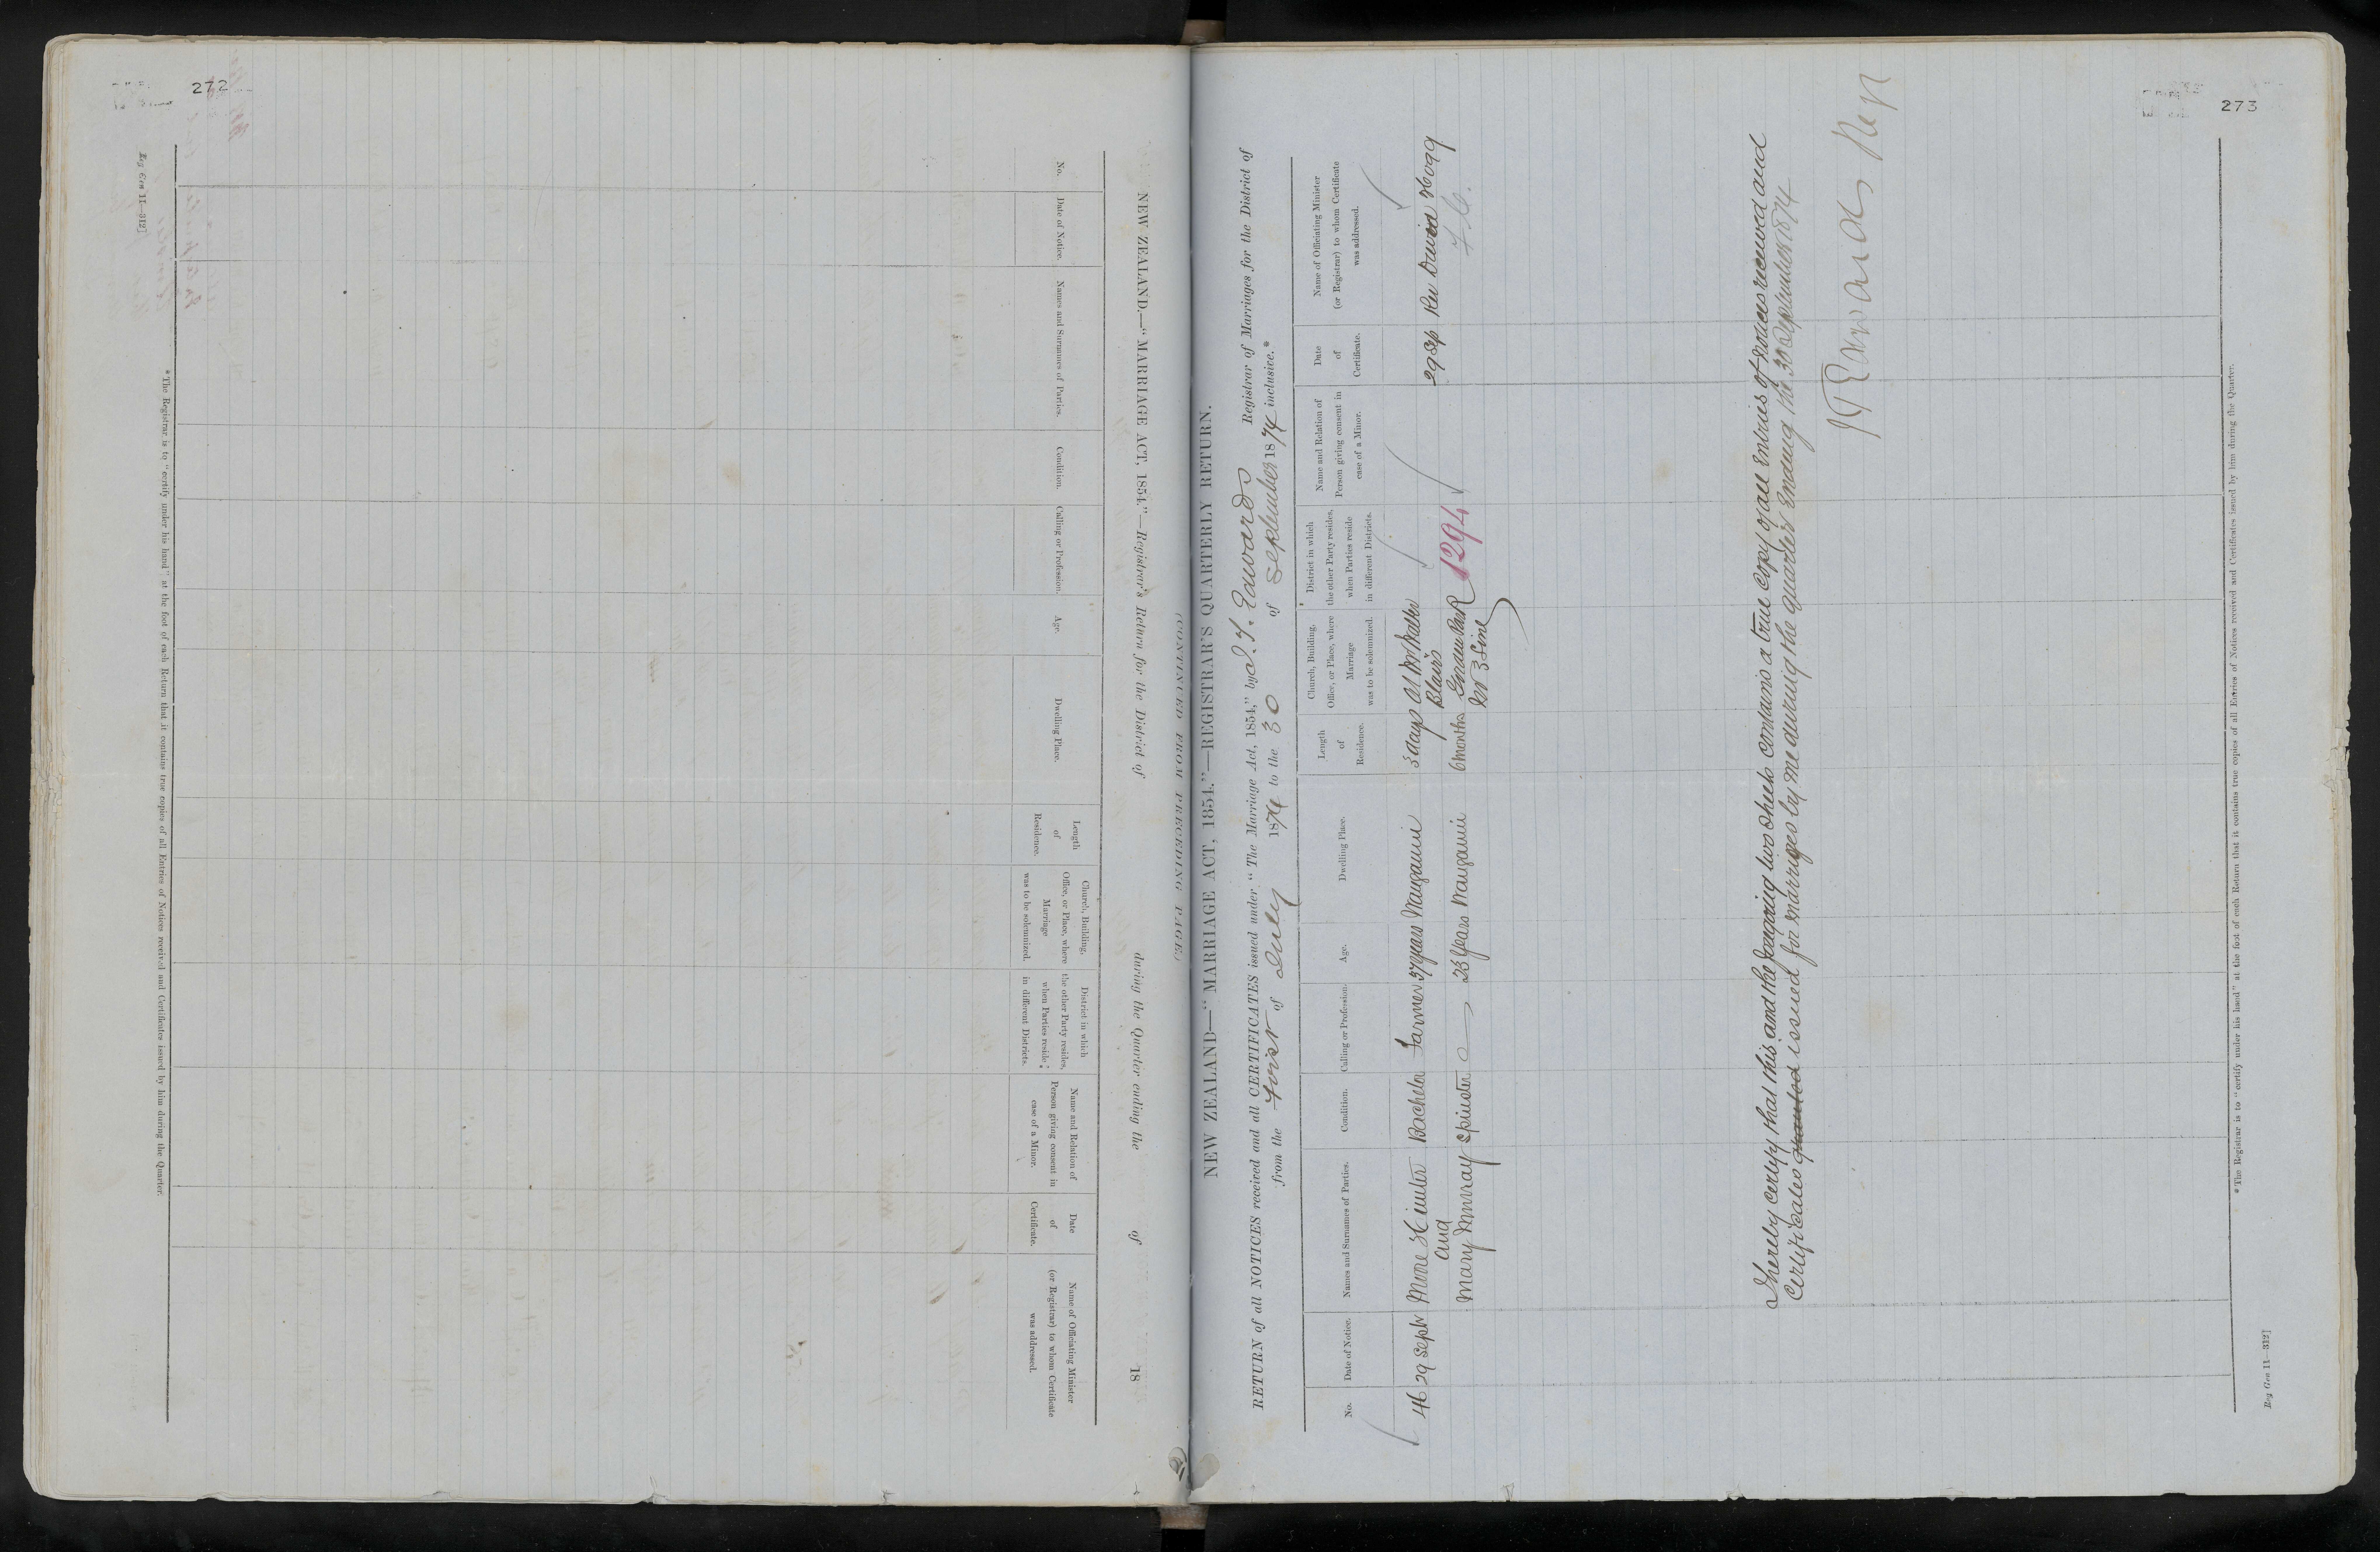 272
NEW ZEALAND.—"MARRIAGE ACT, 1854."—Registrar's Return for the District of during the Quarter ending the of 18
No.
Date of Notice.
Names and Surnames of Parties.
Condition.
Calling or Profession.
Age.
Dwelling Place.
Length
of
Residence.
Church, Building,
Office, or Place, where
Marriage
was to be solemnized.
District in which
the other Party resides,
when Parties reside
in different Districts.
Name and Relation of
Person giving consent in
case of a Minor.
Date
of
Certificate.
Name of Officiating Minister
(or Registrar) to whom Certificate
was addressed.
* The Registrar is to "certify under his hand" at the foot of each Return that it contains true copies of all Entries of Notices received and Certificates issued by him during the Quarter.
Reg Gen 11—312]
(CONTINUED FROM PRECEDING PAGE)
273
NEW ZEALAND—"MARRIAGE ACT, 1854."—REGISTRAR'S QUARTERLY RETURN.
RETURN of all NOTICES received and all CERTIFICATES issued under "The Marriage Act, 1854," by J. T. Edwards Registrar of Marriages for the District of
from the first of July 1874 to the 30 of September 1874 inclusive.*
No.
Date of Notice.
Names and Surnames of Parties.
Condition.
Calling or Profession.
Age.
Dwelling Place.
Length
of
Residence.
Church, Building,
Office, or Place, where
Marriage
was to be solemnized.
District in which
the other Party resides,
when Parties reside
in different Districts.
Name and Relation of
Person giving consent in
case of a Minor.
Date
of
Certificate.
Name of Officiating Minister
(or Registrar) to whom Certificate
was addressed.
46 29 Septr Hunter Bachelor Farmer 37 years Wanganui 3 days at Mr Walter 29 Sep Rev David Hogg
and Blair's
Mary Murray Spinster 28 Years Wanganui 6 months No 3 Line 1294
I hereby certify that this and the foregoing two sheets contains a true copy of all Entries of notices received and
Certificates granted issued for marriages by me during the quarter Ending the 30 September 1874
J T Edwards
* The Registrar is to "certify under his hand" at the foot of each Return that it contains true copies of all Entries of Notices received and Certificates issued by him during the Quarter.
Reg Gen 11—312]